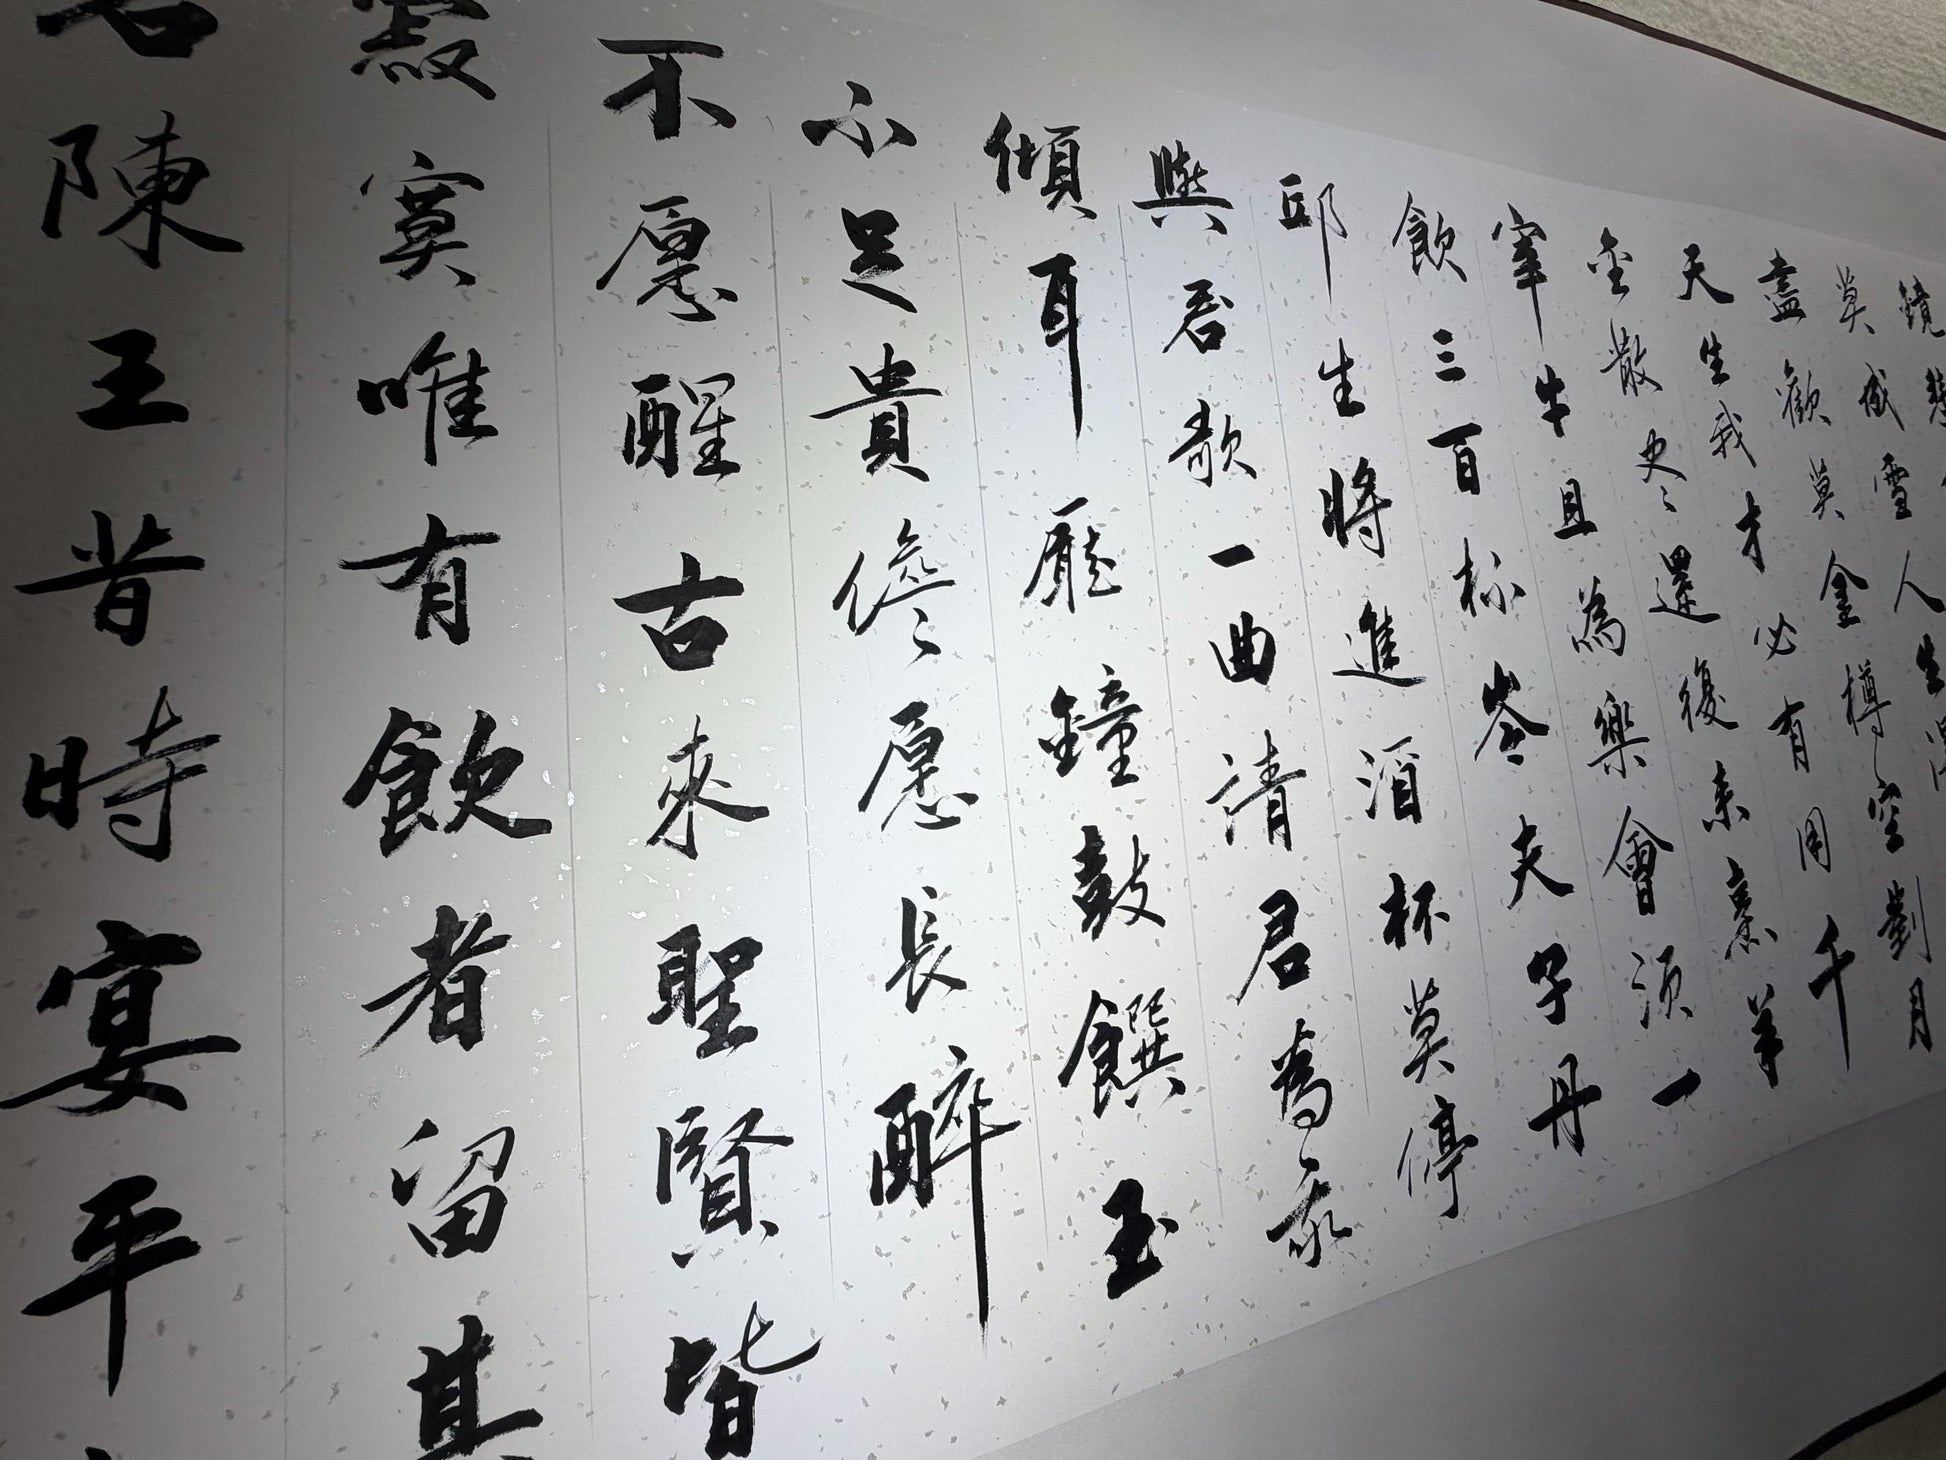 鏡悲
莫成雪人生得
盡歡莫金樽空對月
天生我才必有用千
金散尽還復來烹羊
宰牛且為樂會須一
飲三百杯岑夫子丹
邱生將進酒杯莫停
與君歌一曲請君為我
傾耳聽鐘鼓饌玉
不足貴愿長醉
不愿醒古來聖賢皆
寂寞唯有飲者留其
名陳王昔時宴平